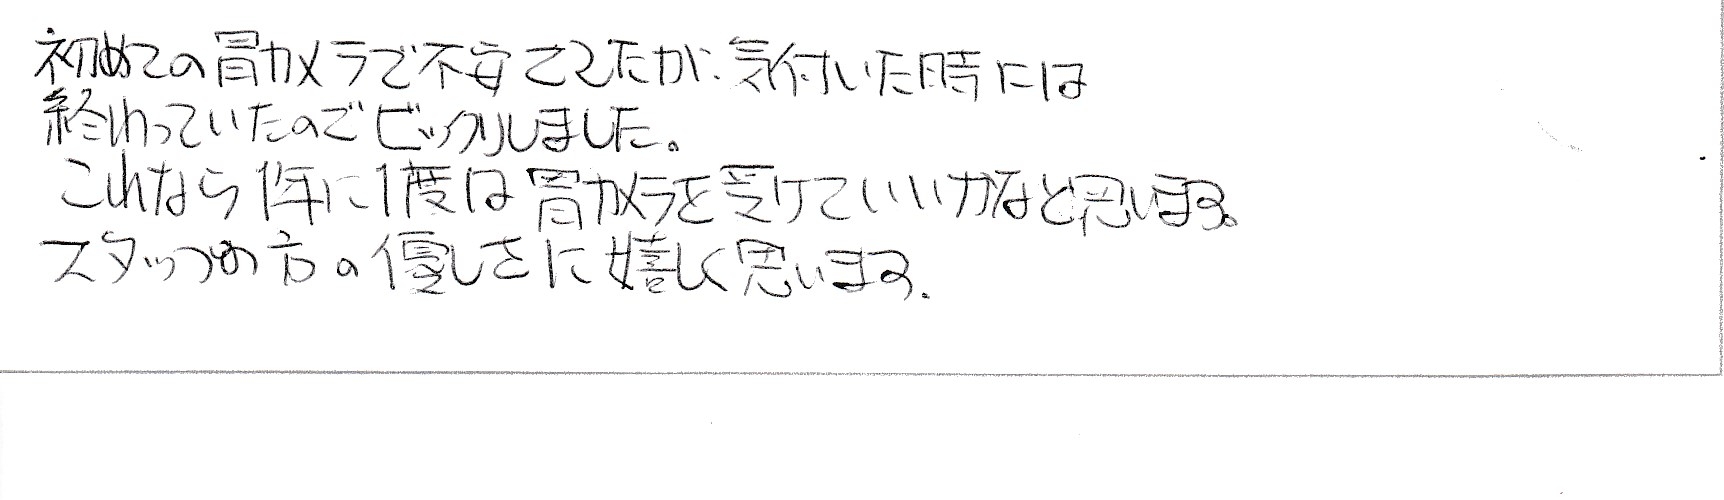 初めての胃カメラで不安でしたが、気付いた時には
終わっていたのでビックリしました。
これなら1年に1度は胃カメラを受けていいかなと思います。
スタッフの方の優しさに嬉しく思います。